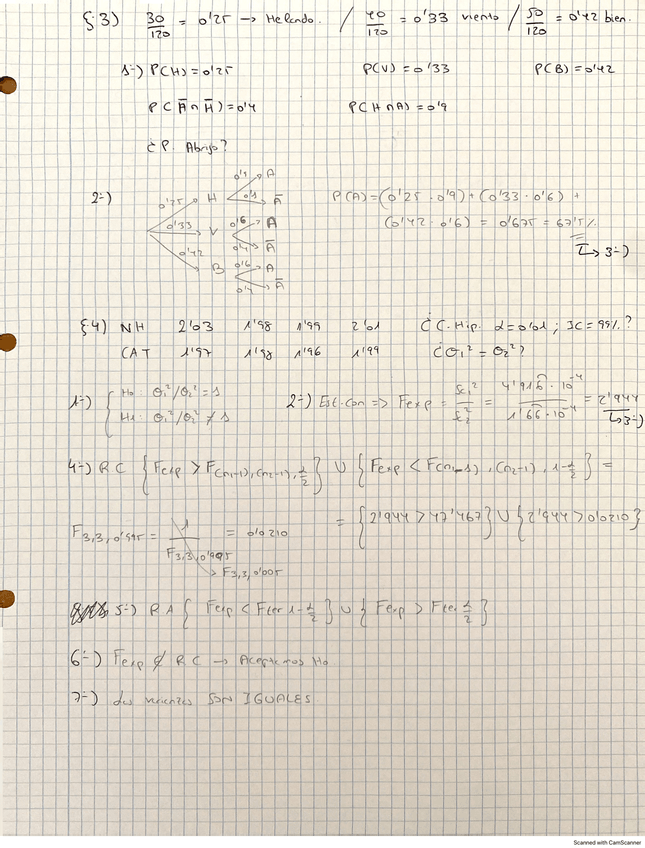 §.3) 30/120 = 0'25 → Helando. / 40/120 = 0'33 viento / 50/120 = 0'42 bien.
1-) P(H)=0'25 P(V)=0'33 P(B)=0'42
P(A̅∩H̅)=0'4 P(H∩A)=0'9
¿P. Abrigo?
2-) 0'25 H 0'9 A 0'1 A̅
0'33 V 0'6 A 0'4 A̅
0'42 B 0'6 A 0'4 A̅
P(A)=(0'25 · 0'9) + (0'33 · 0'6) +
(0'42 · 0'6) = 0'675 = 67'5%
↳ 3-)
§4) NH 2'03 1'98 1'99 2'01 ¿C. Hip. α=0'01; IC=99%?
CAT 1'97 1'98 1'96 1'99 ¿σ₁²=σ₂²?
1-) { H0: σ₁²/σ₂² = 1
H1: σ₁²/σ₂² ≠ 1
2-) Est. Con => Fexp = Sc₁²/Sc₂² = 4'916 · 10⁻⁴ / 1'66 · 10⁻⁴ = 2'944
↳ 3-)
4-) RC {Fexp > F(n₁-1),(n₂-1),α/2} ∪ {Fexp < F(n₁-1),(n₂-1),1-α/2} =
= {2'944 > 47'467} ∪ {2'944 > 0'0210}
F3,3,0'995 = 1/F3,3,0'995 = 0'0210
→ F3,3,0'005
5-) RA { Fexp < Fter 1-α/2 } ∪ { Fexp > Fter α/2 }
6-) Fexp ∉ RC → Aceptamos H0
7-) Las varianzas SON IGUALES.
Scanned with CamScanner